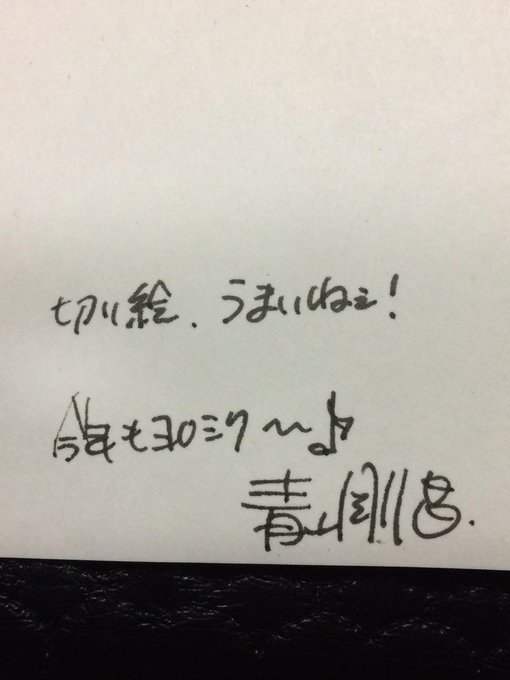 切り絵、うまいねェ!
今年もヨロシク〜♪
青山剛昌.